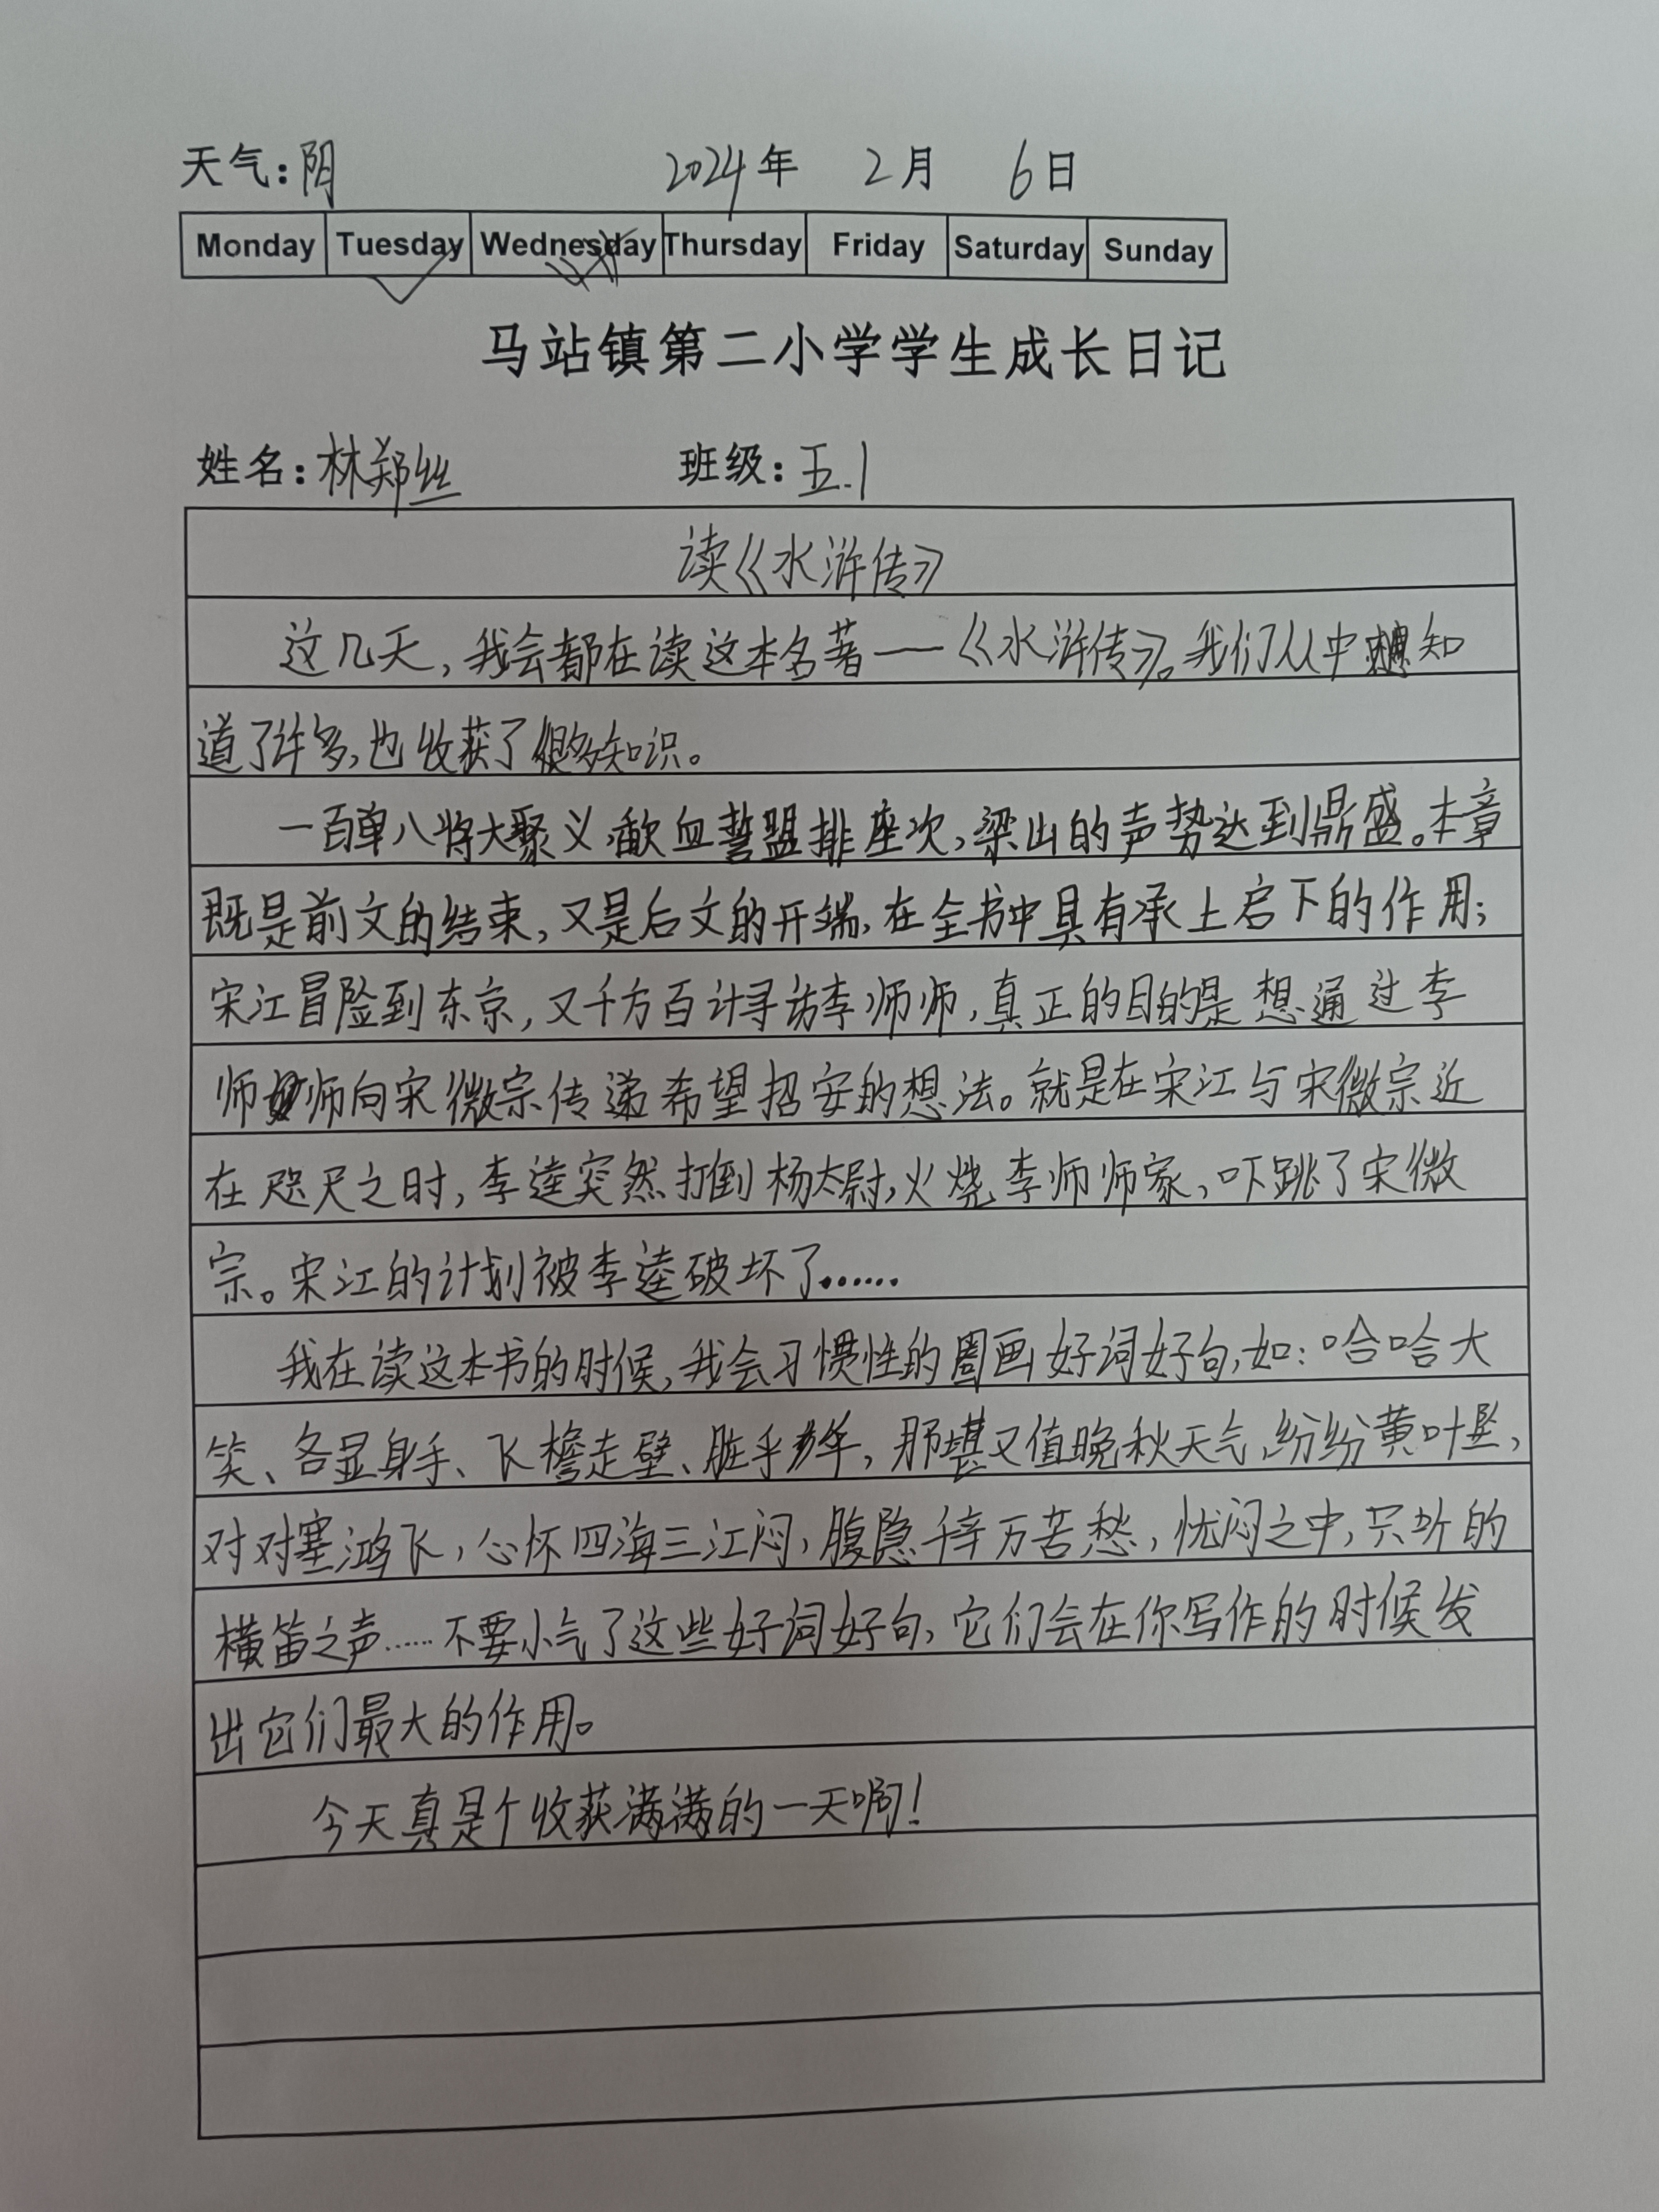 天气:阴 2024年 2月 6日
Monday Tuesday Wednesday Thursday Friday Saturday Sunday
马站镇第二小学学生成长日记
姓名:林郑丝 班级:五.1
读《水浒传》
这几天,我会都在读这本名著——《水浒传》。我们从中知
道了许多,也收获了很多知识。
一百单八将大聚义,歃血誓盟排座次,梁山的声势达到鼎盛。本章
既是前文的结束,又是后文的开端,在全书中具有承上启下的作用;
宋江冒险到东京,又千方百计寻访李师师,真正的目的是想通过李
师师向宋微宗传递希望招安的想法。就是在宋江与宋微宗近
在咫尺之时,李逵突然打倒杨太尉,火烧李师师家,吓跳了宋微
宗。宋江的计划被李逵破坏了……
我在读这本书的时候,我会习惯性的圈画好词好句,如:哈哈大
笑、各显身手、飞檐走壁、胜乎多年,那堪又值晚秋天气,纷纷黄叶坠,
对对塞鸿飞,心怀四海三江闷,腹隐千辛万苦愁,忧闷之中,只听的
横笛之声……不要小气了这些好词好句,它们会在你写作的时候发
出它们最大的作用。
今天真是个收获满满的一天啊!